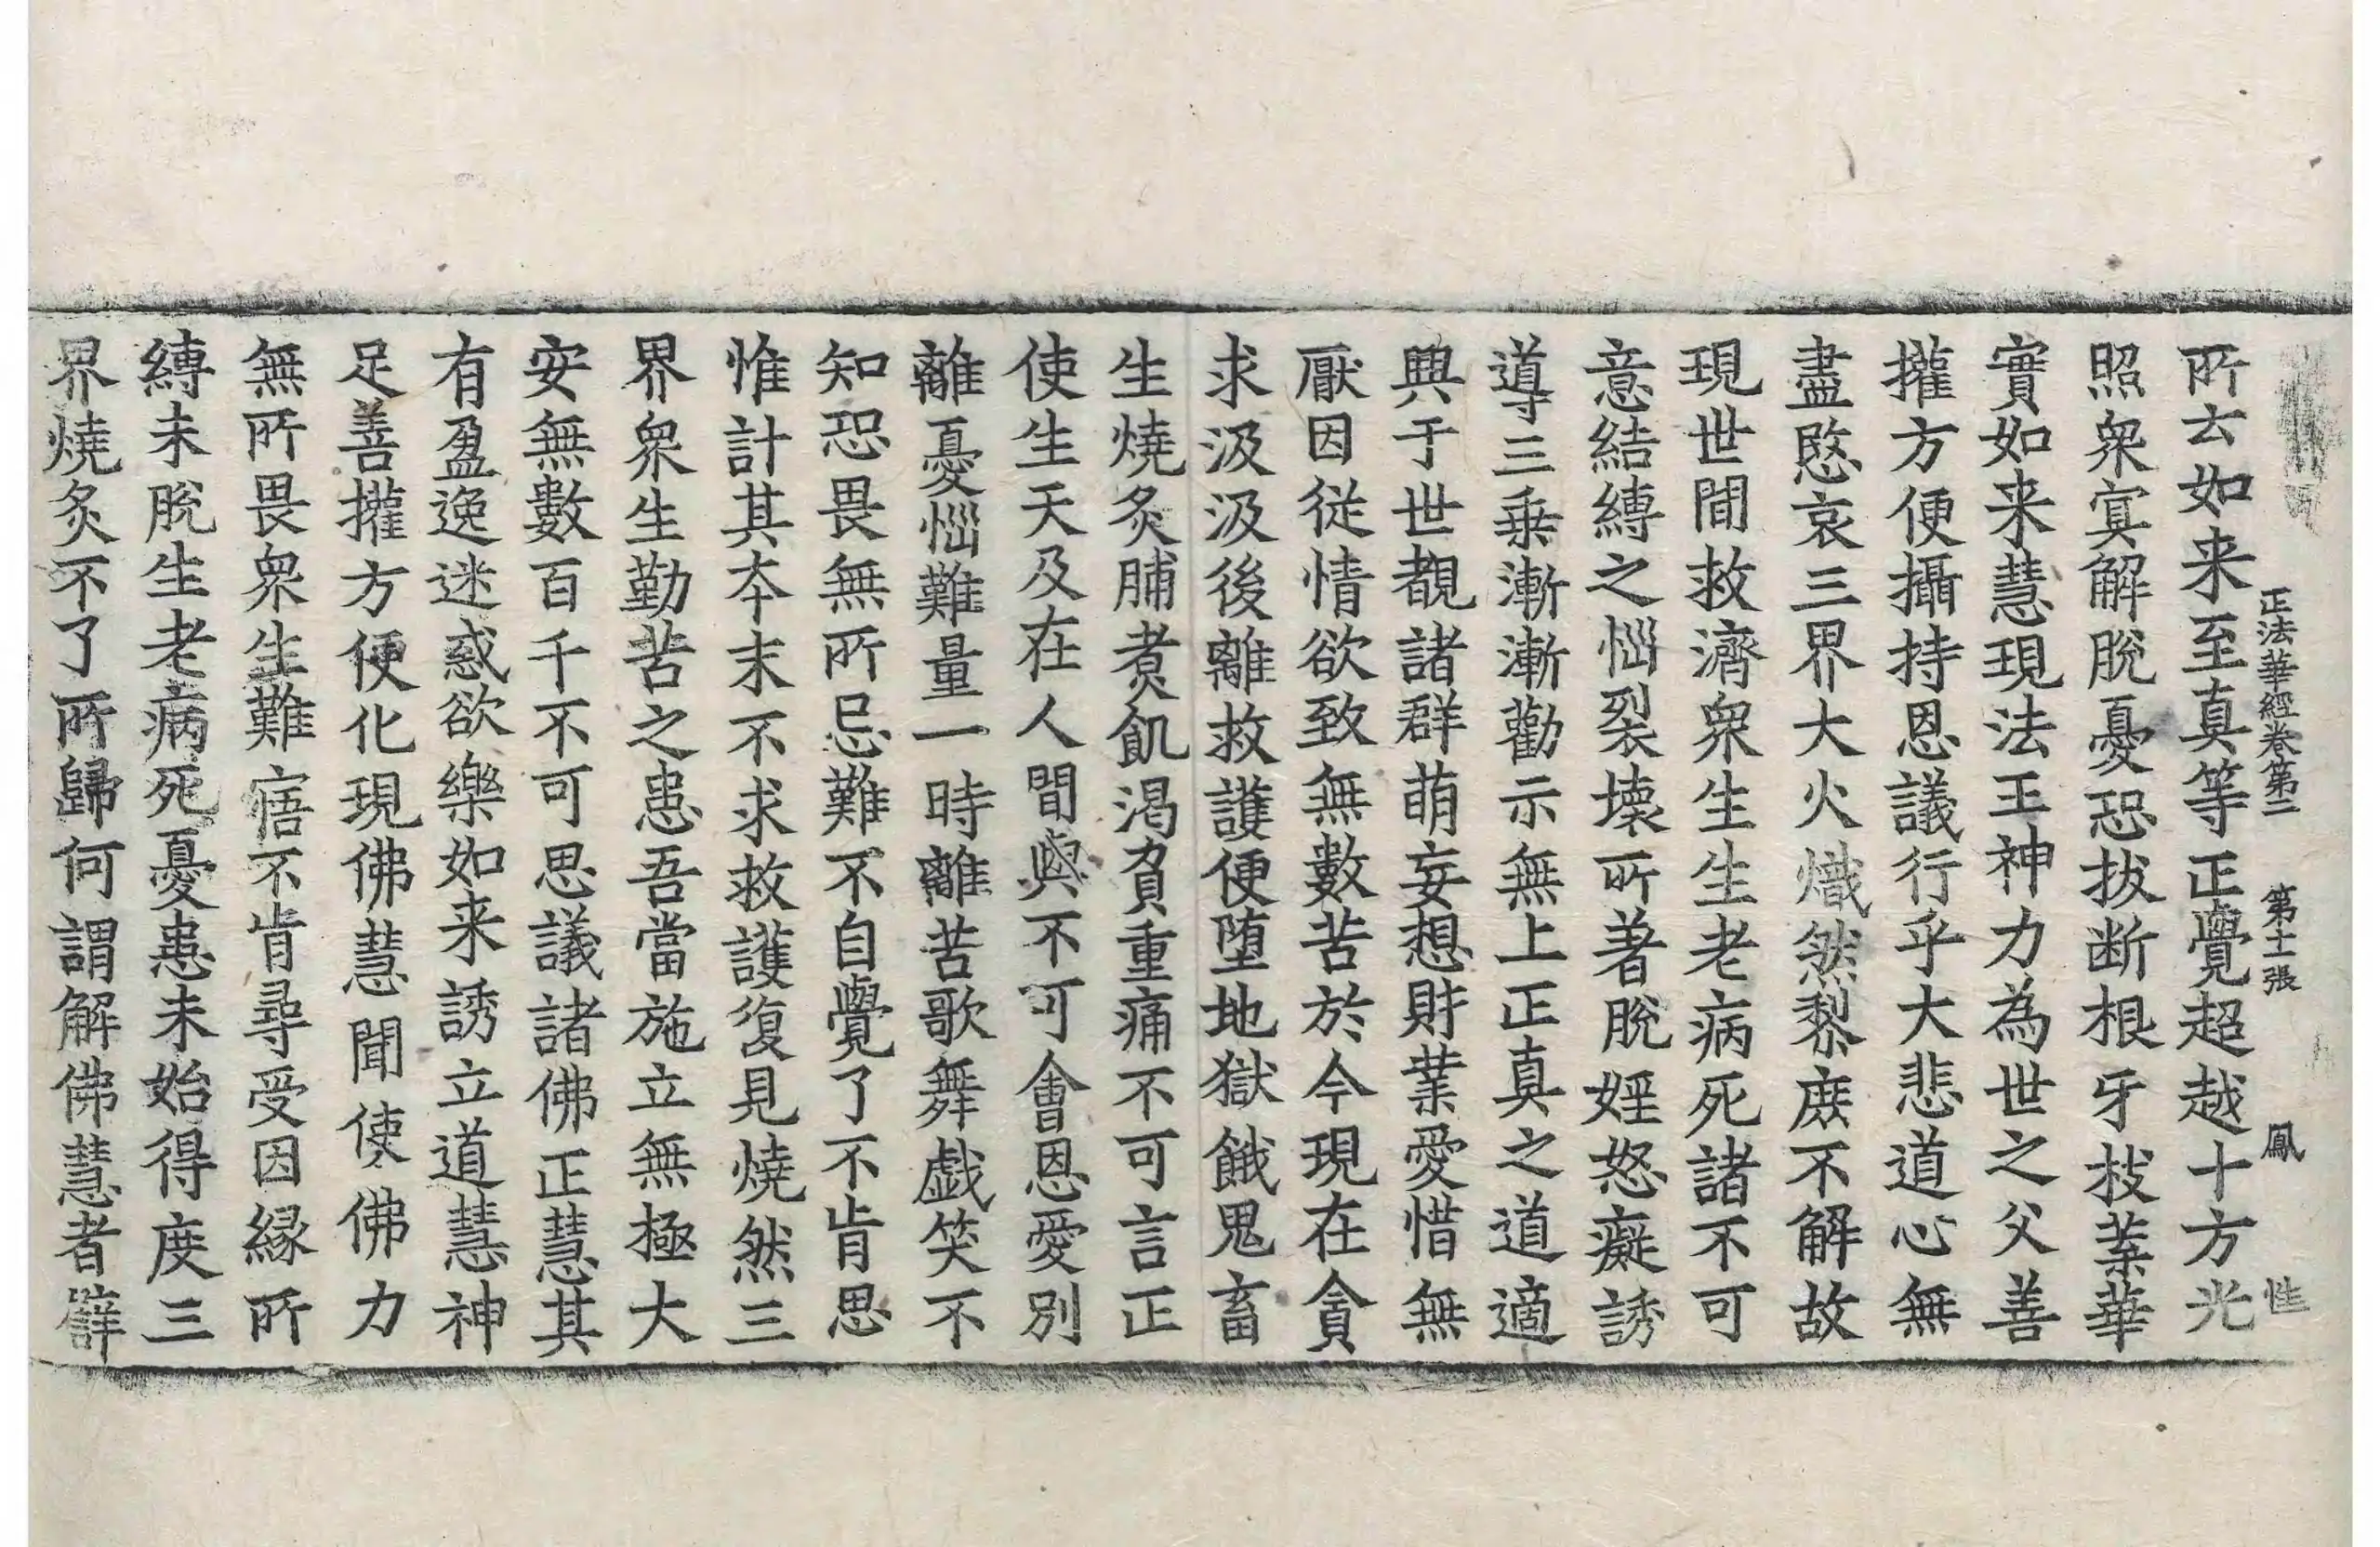 正法華經卷第二 第十一張 鳳
所去如来至真等正覺超越十方光
照衆冥解脫憂恐拔断根牙枝葉華
實如来慧現法王神力為世之父善
權方便攝持恩議行乎大悲道心無
盡愍哀三界大火熾然黎庶不解故
現世間救濟衆生生老病死諸不可
意結縛之惱裂壞所著脫婬怒癡誘
導三乗漸漸勸示無上正真之道適
興于世覩諸群萌妄想財業愛惜無
厭因從情欲致無數苦於今現在貪
求汲汲後離救護便堕地獄餓鬼畜
生燒炙脯煮飢渴負重痛不可言正
使生天及在人間與不可會恩愛別
離憂惱難量一時離苦歌舞戯笑不
知恐畏無所忌難不自覺了不肯思
惟計其夲末不求救護復見燒然三
界衆生勤苦之患吾當施立無極大
安無數百千不可思議諸佛正慧其
有盈逸迷惑欲樂如来誘立道慧神
足善權方便化現佛慧聞使佛力
無所畏衆生難寤不肯尋受因縁所
縛未脫生老病死憂患未始得度三
界燒炙不了所歸何謂解佛慧者譬